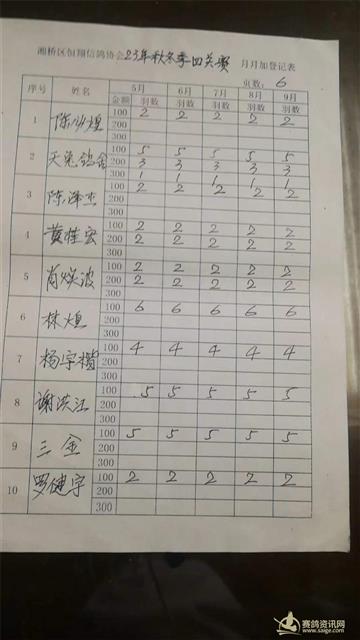 湘桥区恒翔信鸽协会23年秋冬季四关赛 月月加登记表
页数: 6
序号 姓名 5月 6月 7月 8月 9月
金额 羽数 羽数 羽数 羽数 羽数
1 陈少煌 100 2 2 2 2 2
200
300
2 天兔鸽舍 100 5 5 5 5 5
200 3 3 3 3 3
300 1 1 1 1 1
3 陈泽杰 100 2 2 2 2 2
200
300
4 黄桂宏 100 2 2 2 2 2
200 2 2 2 2 2
300
5 肖焕波 100 2 2 2 2 2
200 2 2 2 2 2
300
6 林煌 100 6 6 6 6 6
200
300
7 杨宇楷 100 4 4 4 4 4
200
300
8 谢洪江 100 5 5 5 5 5
200
300
9 三金 100 5 5 5 5 5
200
300
10 罗健宇 100 2 2 2 2 2
200
300
赛鸽资讯网
www.saige.com